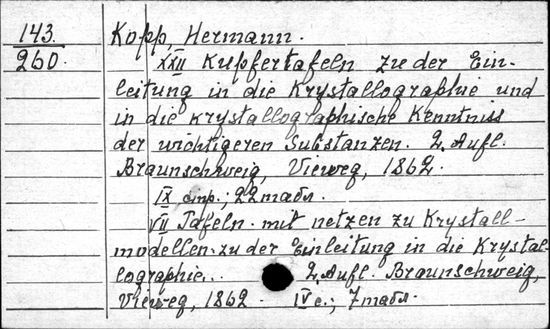 143.
260.
Kopp, Hermann.
XXII Kupfertafeln zu der Ein-
leitung in die Krystallographie und
in die krystallographische Kenntniss
der wichtigeren Substanzen. 2. Aufl.
Braunschweig, Vieweg, 1862.
IX стр.; 22 табл.
VII Tafeln mit netzen zu Krystall-
modellen zu der Einleitung in die Krystal-
lographie.. 2. Aufl. Braunschweig,
Vieweg, 1862. IV с.; 7 табл.